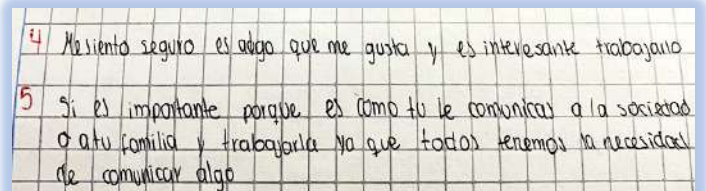 4 Me siento seguro es adgo que me gusta y es interesante trabajarlo
5 Si es importante porque es como tu le comunicas a la sociedad
o a tu familia y trabajarla ya que todos tenemos la necesidad
de comunicar algo